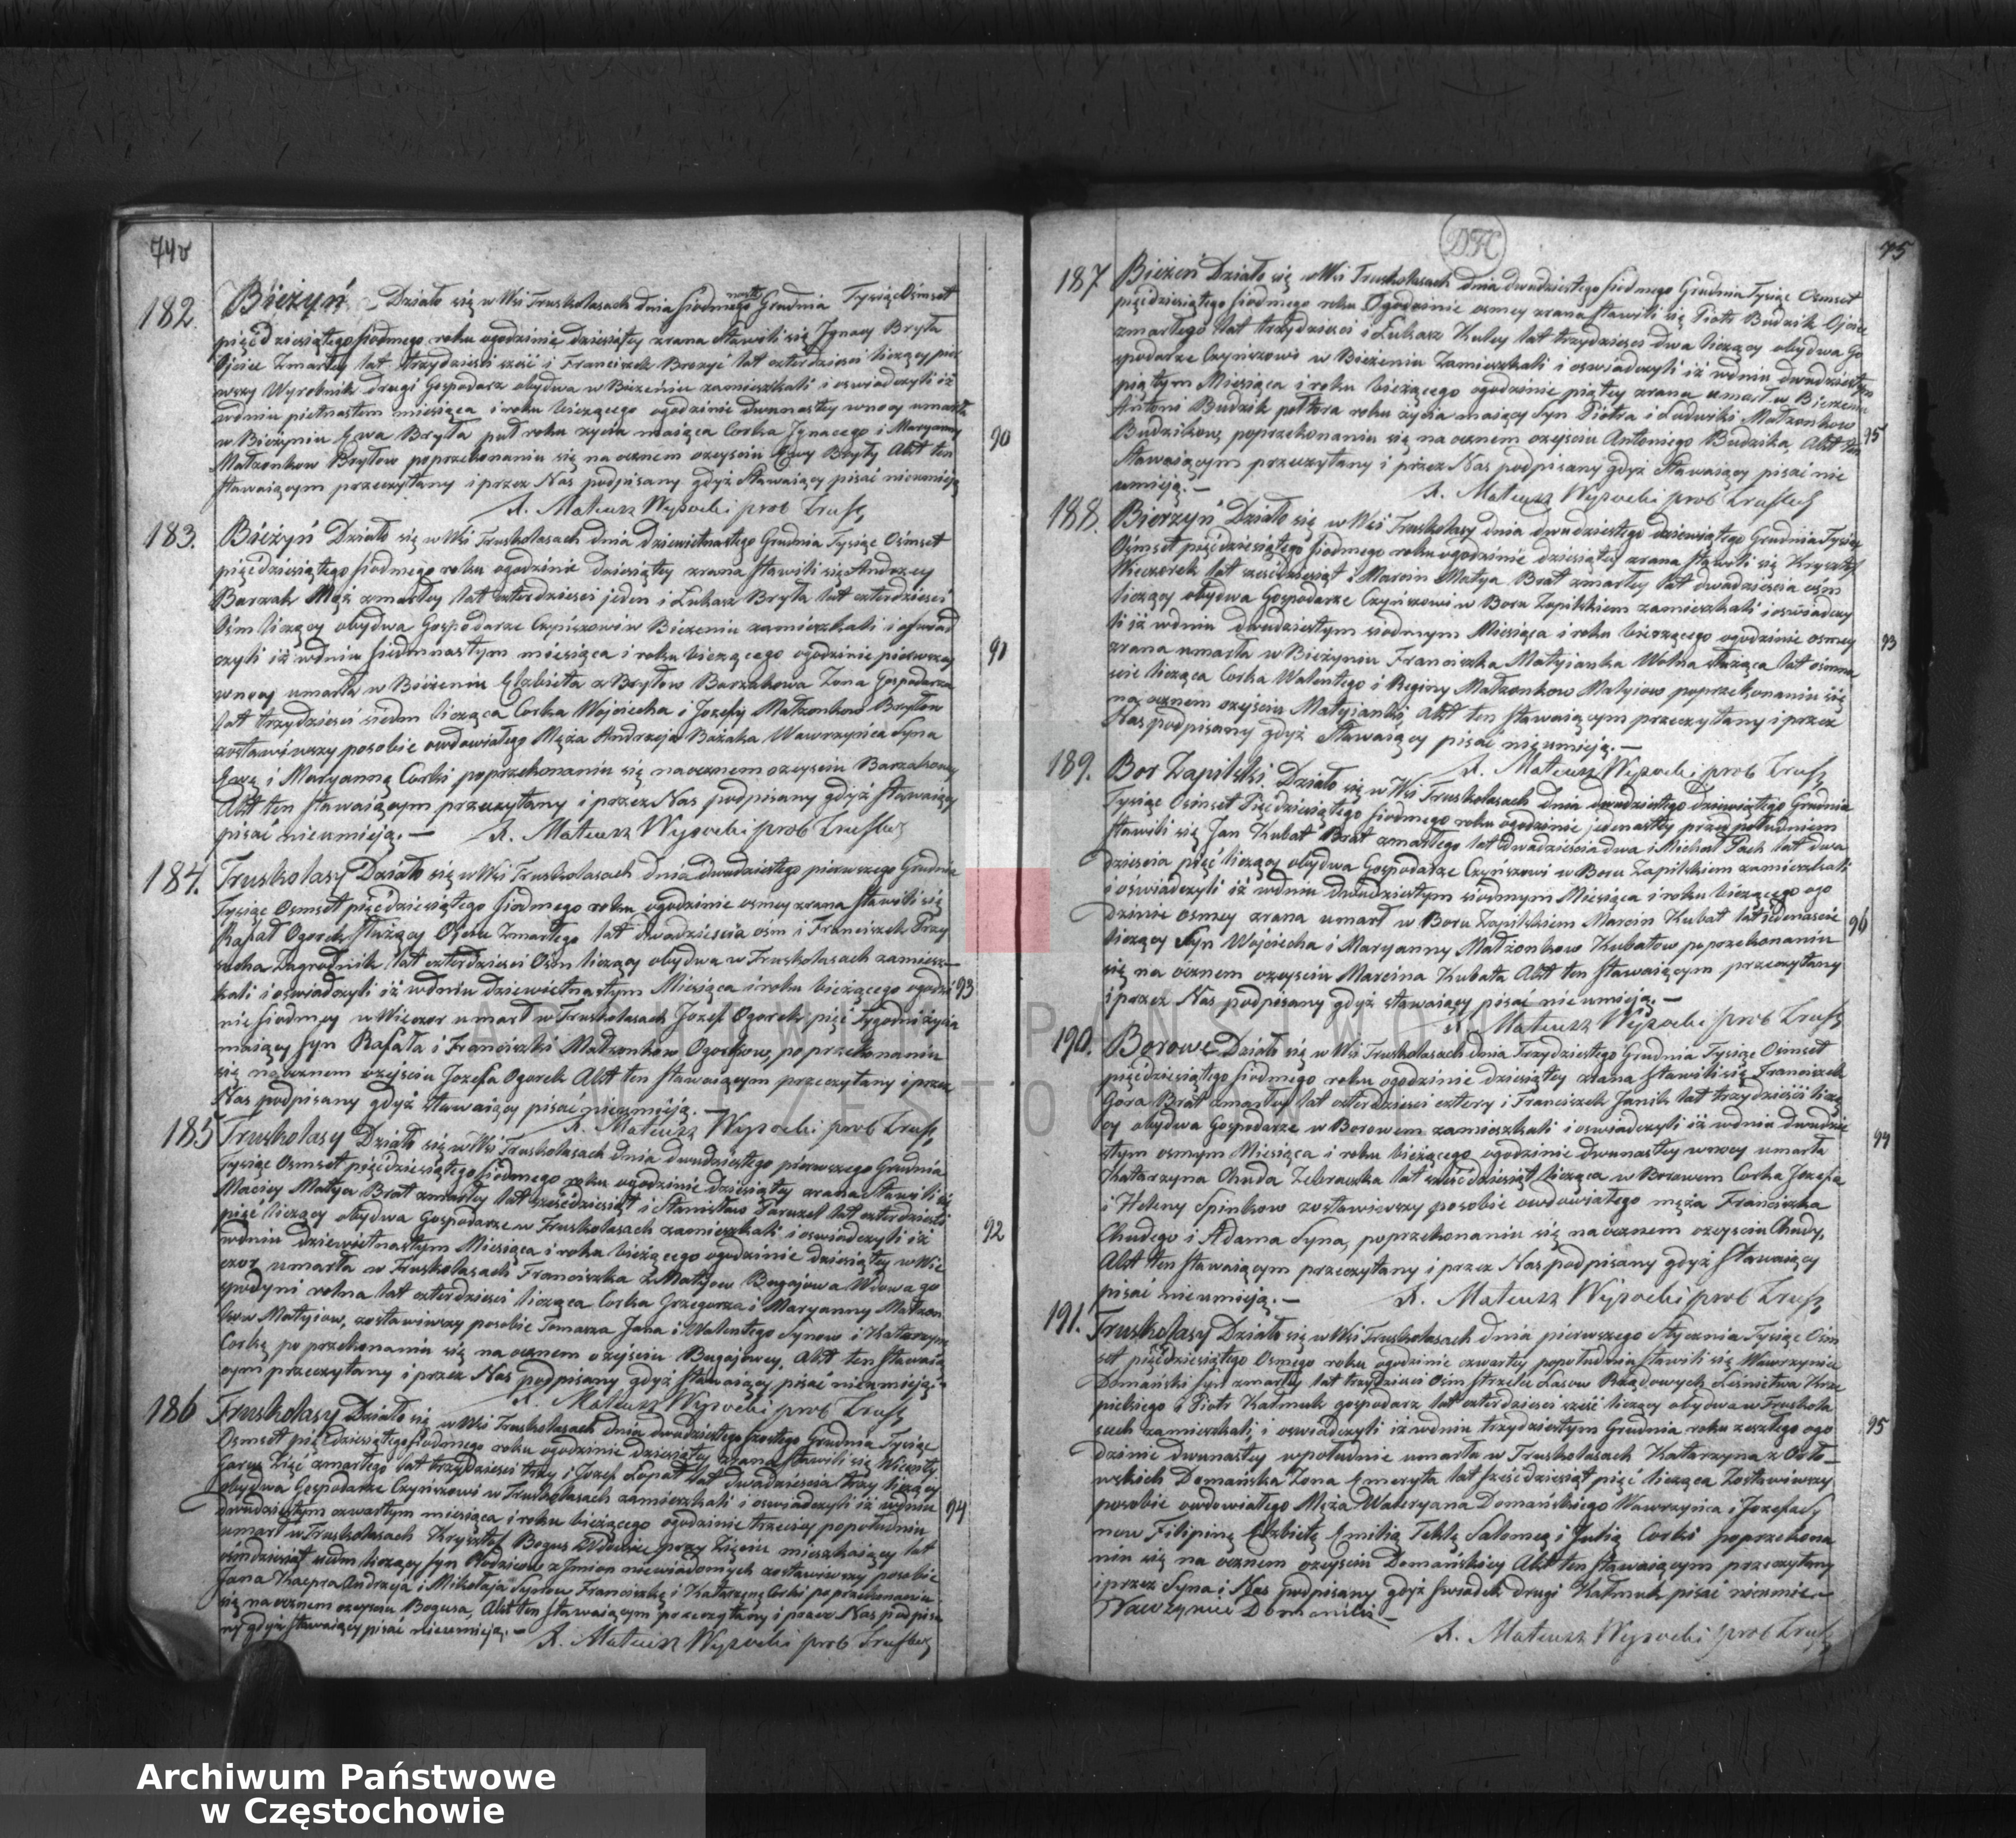 74v
182. Bieżyń Działo się w Wsi Truskolasach dnia siodmego nasto Grudnia Tysiąc Ośmset
pięćdziesiątego siodmego roku ogodzinie dziesiątey zrana stawili się Jgnacy Bryła
Ojciec Zmarłey lat trzydzieści sześć i Franciszek lat czterdzieści liczący pier
wszy Wyrobnik drugi Gospodarz obydwa w Bieżeniu zamieszkali i oswiadczyli iż
wdniu pietnastem miesiąca i roku bieżącego ogodzinie dwunastey wnocy umarła
w Bieżyniu Ewa Bryła puł roku życia maiąca Corka Jgnacego i Maryanny
Małzonkow Bryłow poprzekonaniu się na ocznem ozeysciu Ewy Bryły Akt ten
stawaiącym przeczytany i przez Nas podpisany gdyż stawaiący pisać nieumieją
90
X. Mateusz Wysocki prob Trusk
183. Bieżyń Działo się w Wsi Truskolasach dnia dziewietnastego Grudnia Tysiąc Ośmset
pięćdziesiątego siodmego roku ogodzinie dziesiątey zrana stawili się Andrzey
Barzak Mąż zmarłey lat czterdzieści jeden i Łukasz Bryła lat czterdzieści
Ośm liczący obydwa Gospodarze Czynszowi w Bieżeniu zamieszkali i oswiad
czyli iż wdniu siedmnastym miesiąca i roku bieżącego ogodzinie pierwszey
91
wnocy umarła w Bieżeniu Elzbieta z Bryłow Barzakowa Zona Gospodarza
lat trzydzieści siedm licząca Corka Wojciecha i Jozefy Małzonkow Bryłow
zostawiwszy posobie owdowiałego Męża Andrzeja Wawrzyńca Syna
i Maryannę Corki poprzekonaniu się naocznem ozeysciu Barzakowey
Akt ten stawaiącym przeczytany i przez Nas podpisany gdyż stawaiący
pisać nieumieją. — X. Mateusz Wysocki prob Truskol
184. Truskolasy Działo się w Wsi Truskolasach dnia dwudziestego pierwszego Grudnia
Tysiąc Osmset pięćdziesiątego siodmego roku ogodzinie osmey zrana stawili się
Rafał Ogorek Służący Ojciec Zmarłego lat dwadzieścia ośm i Franciszek Przy
sucha Zagrodnik lat czterdzieści Ośm liczący obydwa w Truskolasach zamiesz
kali i oswiadczyli iż wdniu dziewietnastym Miesiąca i roku bieżącego ogodzi
93
nie siodmey w Wieczor umarł w Truskolasach Jozef Ogorek pięć Tygodni życia
maiący syn Rafała i Franciszki Małzonkow Ogorkow, po przekonaniu
się naocznem ozejsciu Jozefa Ogorek Akt ten stawaiącym przeczytany i przez
Nas podpisany gdyż stawaiący pisać nieumieją. —
X. Mateusz Wysocki prob Trusk
185 Truskolasy Działo się w Wsi Truskolasach dnia dwudziestego pierwszego Grudnia
Tysiąc Osmset pięćdziesiątego siodmego roku ogodzinie dziesiątey zrana stawili się
Maciey Matya Brat zmarłey lat sześćdziesiąt i Stanisław lat czterdzieści
pięć liczący obydwa Gospodarze w Truskolasach zamieszkali i oswiadczyli iż
wdniu dziewiętnastym Miesiąca i roku bieżącego ogodzinie dziesiątey w Wie
92
czor umarła w Truskolasach Franciszka z Matyiow Bugajowa Wdowa go
spodyni rolna lat czterdzieści licząca Corka Grzegorza i Maryanny Małzon
kow Matyiow, zostawiwszy posobie Tomasza Jana i Walentego Synow i Katarzynę
Corkę po przekonaniu się na ocznem ozejsciu Bugajowey, Akt ten stawaią
cym przeczytany i przez Nas podpisany gdyż stawaiący pisać nieumieją
X. Mateusz Wysocki prob Trusk
186 Truskolasy Działo się w Wsi Truskolasach dnia dwudziestego szostego Grudnia Tysiąc
Osmset pięćdziesiątego siodmego roku ogodzinie dziesiątey zrana stawili się Wincenty
Zięć zmarłego lat trzydzieści trzy i Jozef Łapat lat dwadzieścia trzy liczący
obydwa Gospodarze Czynszowi w Truskolasach zamieszkali i oswiadczyli iż wdniu
94
dwudziestym czwartym miesiąca i roku bieżącego ogodzinie trzeciey popołudniu
umarł w Truskolasach Krysztof Bogus Wdowiec przy Zięciu mieszkaiący lat
ośmdziesiąt siedm liczący syn Rodzicow z Jmion niewiadomych zostawiwszy posobie
Jana Kacpra Andrzeja i Mikołaja Synow Franciszkę i Katarzynę Corki po przekonaniu
się na ocznem ozejsciu Bogusa, Akt ten stawaiącym przeczytany i przez Nas podpisa
ny gdyż stawaiący pisać nieumieją. — X. Mateusz Wysocki prob Truskol
75
187 Bieżeń Działo się w Wsi Truskolasach dnia dwudziestego siodmego Grudnia Tysiąc Ozmset
pięćdziesiątego siodmego roku Ogodzinie osmey zrana stawili się Piotr Budzik Ojciec
zmarłego lat trzydzieści i Łukasz Kulej lat trzydzieści dwa liczący obydwa Go
spodarze Czynszowi w Bieżeniu Zamieszkali i oswiadczyli iż wdniu dwudziestym
piątym Miesiąca i roku bieżącego ogodzinie piątey zrana umarł w Bieżeniu
Antoni Budzik połtora roku życia maiący Syn Piotra i Ludwiki Małzonkow
95
Budzikow, poprzekonaniu się na ocznem ozejsciu Antoniego Budzika, Akt ten
stawaiącym przeczytany i przez Nas podpisany gdyż stawaiący pisać nie
umieją. — X. Mateusz Wysocki prob Truskol
188. Bierzyń Działo się w Wsi Truskolasy dnia dwudziestego dziewiątego Grudnia Tysiąc
Ośmset pięćdziesiątego siodmego roku ogodzinie dziesiątey zrana stawili się Krysztof
Wieczorek lat sześćdziesiąt i Marcin Matya Brat zmarłey lat dwadzieścia ośm
liczący obydwa Gospodarze Czynszowi w Boru Zapilskiem zamieszkali i oswiadczy
li iż wdniu dwudziestym siodmym Miesiąca i roku bieżącego ogodzinie osmey
93
zrana umarła w Bieżyniu Franciszka Matyianka Wolna służąca lat ośmna
scie licząca Corka Walentego i Reginy Małzonkow Matyiow poprzekonaniu się
na ocznem ozejsciu Matyianki, Akt ten stawaiącym przeczytany i przez
Nas podpisany gdyż stawaiący pisać nieumieją. —
X. Mateusz Wysocki prob Trusk
189. Bor Zapilski. Działo się w Wsi Truskolasach dnia dwudziestego dziewiątego Grudnia
Tysiąc Osmset Pięćdziesiątego siodmego roku ogodzinie jedenastey przed południem
stawili się Jan Kubat Brat zmarłego lat dwadzieścia dwa i Michał Pach lat dwa
dzieścia pięć liczący obydwa Gospodarze Czynszowi w Boru Zapilskiem zamieszkali
i oświadczyli iż wdniu dwudziestym siodmym Miesiąca i roku bieżącego ogo
dzinie osmey zrana umarł w Boru Zapilskiem Marcin Kubat lat jedenaście
96
liczący Syn Wojciecha i Maryanny Małzonkow Kubatow poprzekonaniu
się na ocznem ozejsciu Marcina Kubata Akt ten stawaiącym przeczytany
i przez Nas podpisany gdyż stawaiący pisać nieumieją. —
X. Mateusz Wysocki prob Trusk
190. Borowe Działo się w Wsi Truskolasach dnia Trzydziestego Grudnia Tysiąc Ośmset
pięćdziesiątego siodmego roku ogodzinie dziesiątey zrana stawili się Franciszek
Gora Brat zmarłey lat czterdzieści cztery i Franciszek Janik lat trzydzieści liczą
cy obydwa Gospodarze w Borowem zamieszkali i oswiadczyli iż wdniu dwudzie
94
stym osmym Miesiąca i roku bieżącego ogodzinie dwunastey wnocy umarła
Katarzyna Chuda Zebraczka lat sześćdziesiąt licząca w Borowem Corka Jozefa
i Heleny Spinkow zostawiwszy posobie owdowiałego męża Franciszka
Chudego i Adama Syna, poprzekonaniu się na ocznem ozejsciu Chudy,
Akt ten stawaiącym przeczytany i przez Nas podpisany gdyż stawaiący
pisać nieumieją. — X. Mateusz Wysocki prob Trusk
191. Truskolasy Działo się w Wsi Truskolasach dnia pierwszego Stycznia Tysiąc Ośm
set pięćdziesiątego Osmego roku ogodzinie czwartey popołudniu stawili się Wawrzyniec
Domański syn zmarłey lat trzydzieści Ośm strzelec Lasow Rządowych Leśnictwa Krze
pickiego i Piotr Kałmuk gospodarz lat czterdzieści sześć liczący obydwa w Truskola
95
sach zamieszkali, i oswiadczyli iż wdniu trzydziestym Grudnia roku zeszłego ogo
dzinie dwunastey wpołudnie umarła w Truskolasach Katarzyna z Orło
wskich Domańska Zona Emeryta lat sześćdziesiąt pięć licząca Zostawiwszy
posobie owdowiałego Męża Waleryana Domańskiego Wawrzyńca i Jozefa Sy
now Filipinę Elzbietę Emilią Teklę Salomeą i Julią Corki poprzekona
niu się na ocznem ozejsciu Domańskiey Akt ten stawaiącym przeczytany
i przez Syna i Nas podpisany gdyż świadek drugi Kałmuk pisać nieumie
Wawrzyniec Domański —
X. Mateusz Wysocki prob Trusk
ARCHIWUM PAŃSTWOWE
W CZĘSTOCHOWIE
Archiwum Państwowe
w Częstochowie